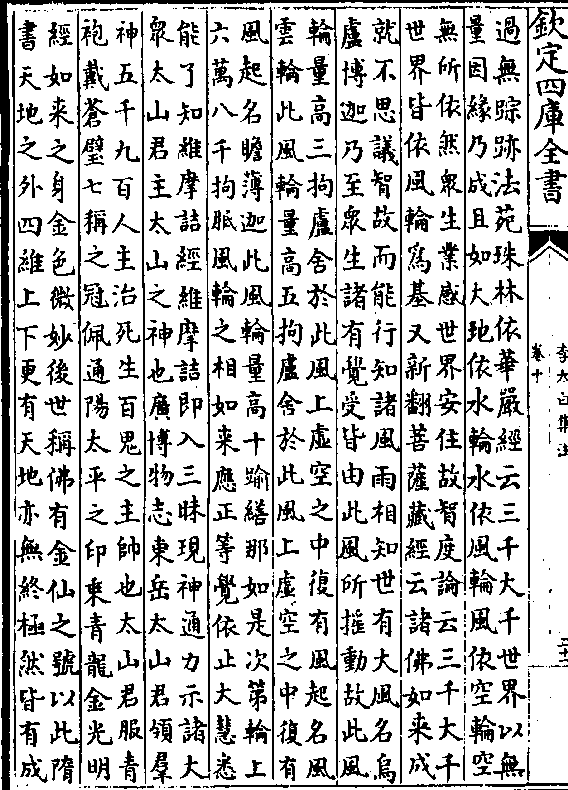 欽定四庫全書
李太白集注
卷十
過無踪跡法苑珠林依華嚴經云三千大千世界以無
量因緣乃成且如大地依水輪水依風輪風依空輪空
無所依然衆生業感世界安住故智度論云三千大千
世界皆依風輪為基又新翻菩薩藏經云諸佛如来成
就不思議智故而能行知諸風雨相知世有大風名烏
盧博迦乃至衆生諸有覺受皆由此風所摇動故此風
輪量高三拘盧舍於此風上虚空之中復有風起名風
雲輪此風輪量高五拘盧舍於此風上虚空之中復有
風起名瞻薄迦此風輪量高十踰繕那如是次第輪上
六萬八千拘胝風輪之相如来應正等覺依止大慧悉
能了知維摩詰經維摩詰即入三昧現神通力示諸大
衆太山君主太山之神也廣博物志東岳太山君領羣
神五千九百人主治死生百鬼之主帥也太山君服青
袍戴蒼璧七稱之冠佩通陽太平之印乘青龍金光明
經如来之身金色微妙後世稱佛有金仙之號以此隋
書天地之外四維上下更有天地亦無終極然皆有成